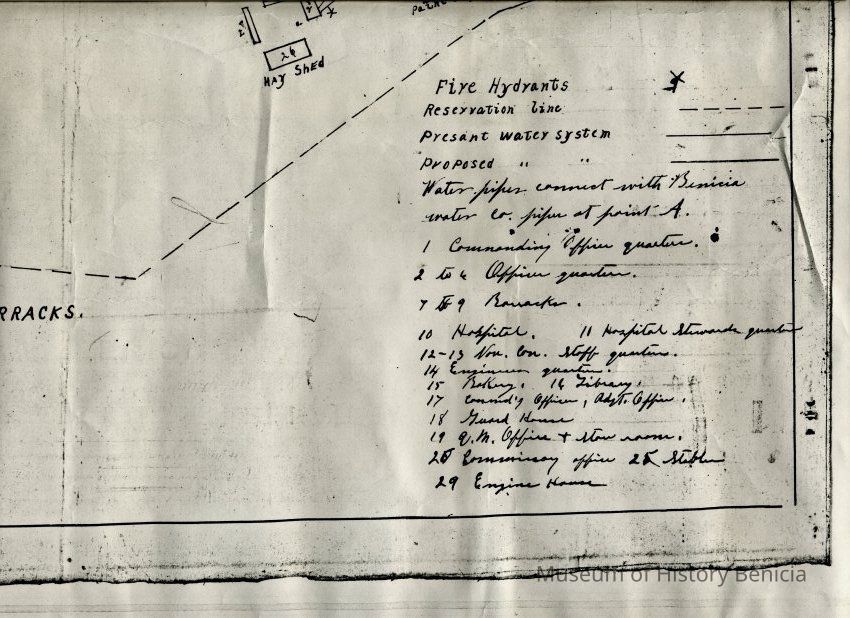 24
HAY SHED
RRACKS.
Fire Hydrants
Reservation line
Presant water system
Proposed " "
Water pipes connect with Benicia
water co. pipe at point A.
1 Commanding Officer quarters.
2 to 6 Officer quarters.
7 to 9 Barracks.
10 Hospital. 11 Hospital Stewards quarters
12-13 Non. Com. Staff quarters.
14 Engineer quarters.
15 Bakery. 16 Library.
17 Officer, Adjt. Office.
18 Guard House
19 Q.M. Office + Store room.
Commissary office Stables
29 Engine House
Museum of History Benicia